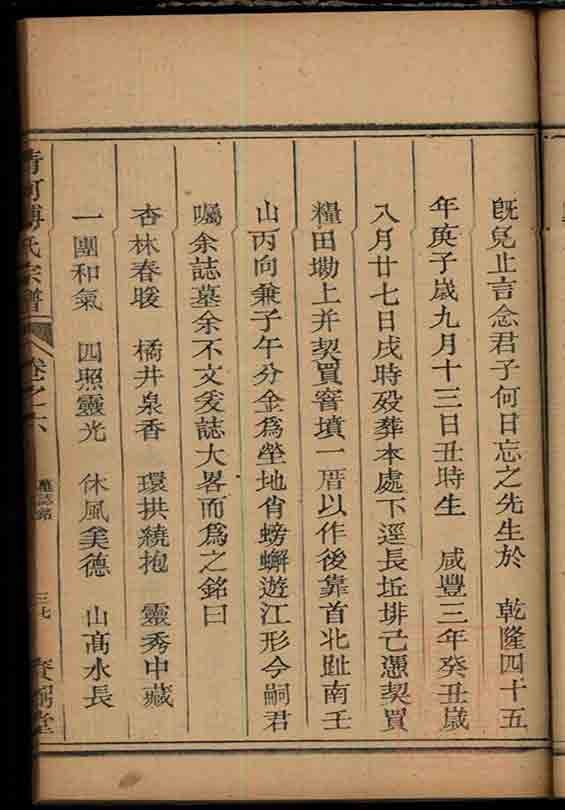 既見止言念君子何日忘之先生於 乾隆四十五
年庚子歲九月十三日丑時生 咸豐三年癸丑歲
八月廿七日戌時歿葬本處下逕長坵排己憑契買
糧田墈上并契買窨墳一厝以作後靠首北趾南壬
山丙向兼子午分金爲塋地肖螃蠏遊江形今嗣君
囑余誌墓余不文爰誌大畧而爲之銘曰
杏林春暖 橘井泉香 環拱繞抱 靈秀中藏
一團和氣 四照靈光 休風美德 山高水長
清河傅氏宗譜 卷之六 墓誌銘 三七 堂